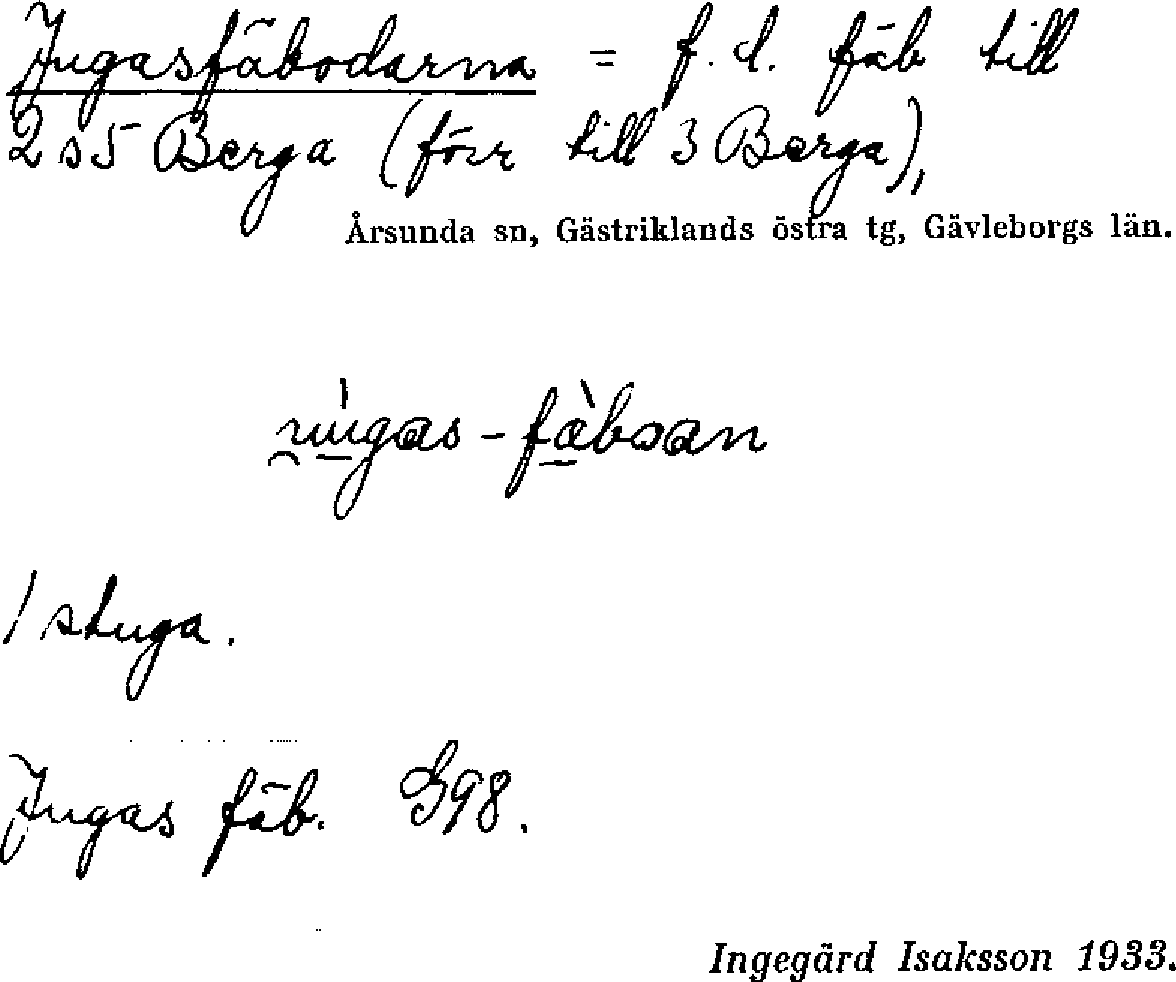 Jugasfäbodarna = f. d. fäb till
2 o 5 Berga (förr till 3 Berga),
Årsunda sn, Gästriklands östra tg, Gävleborgs län.
-fàbsan
1 stuga.
Jugas fäb. G98.
Ingegärd Isaksson 1933.